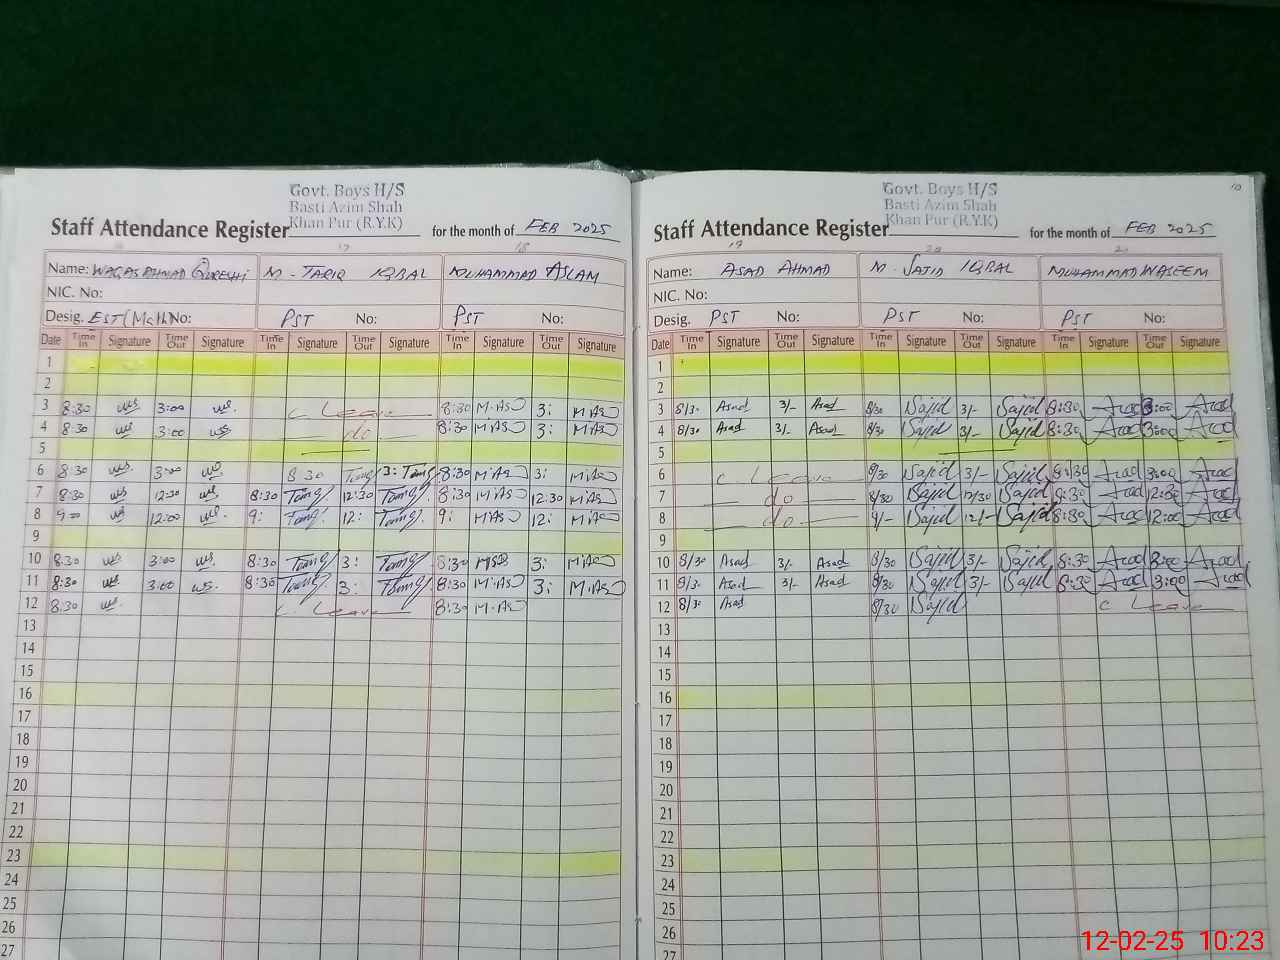 Govt. Boys H/S
Basti Azim Shah
Khan Pur (R.Y.K)
Staff Attendance Register for the month of FEB 2025
17 18
Name: WAQAS AHMAD QURESHI M - TARIQ IQBAL MUHAMMAD ASLAM
NIC. No:
Desig. EST (Math) No: PST No: PST No:
Date Time In Signature Time Out Signature Time In Signature Time Out Signature Time In Signature Time Out Signature
1
2
3 8:30 3:00 C Leave 8:30 M.AS 3: M.AS
4 8:30 3:00 do 8:30 M.AS 3: M.AS
5
6 8:30 3:00 8 30 3: 8:30 M.AS 3: M.AS
7 8:30 12:30 8:30 12:30 8:30 M.AS 12:30 M.AS
8 9:00 12:00 9: 12: 9: M.AS 12: M.AS
9
10 8:30 3:00 8:30 3: 8:30 3: M.AS
11 8:30 3:00 8:30 3: 8:30 M.AS 3: M.AS
12 8:30 C Leave 8:30 M.AS
13
14
15
16
17
18
19
20
21
22
23
24
25
26
27
10
Govt. Boys H/S
Basti Azim Shah
Khan Pur (R.Y.K)
Staff Attendance Register for the month of FEB 2025
19 20 20
Name: ASAD AHMAD M. SAJID IQBAL MUHAMMAD WASEEM
NIC. No:
Desig. PST No: PST No: PST No:
Date Time In Signature Time Out Signature Time In Signature Time Out Signature Time In Signature Time Out Signature
1
2
3 8/30 Asad 3/- Asad 8/30 Sajid 3/- Sajid 8:30 3:00
4 8/30 Asad 3/- Asad 8/30 Sajid 3/- Sajid 8:30 3:00
5
6 C Leave 8/30 Sajid 3/- Sajid 8:30 3:00
7 do 8/30 Sajid 12/30 Sajid 8:30 12:30
8 do 9/- Sajid 12/- Sajid 8:30 12:00
9
10 8/30 Asad 3/- Asad 8/30 Sajid 3/- Sajid 8:30 3:00
11 8/30 Asad 3/- Asad 8/30 Sajid 3/- Sajid 8:30 3:00
12 8/30 Asad 8/30 Sajid C Leave
13
14
15
16
17
18
19
20
21
22
23
24
25
26
12-02-25 10:23